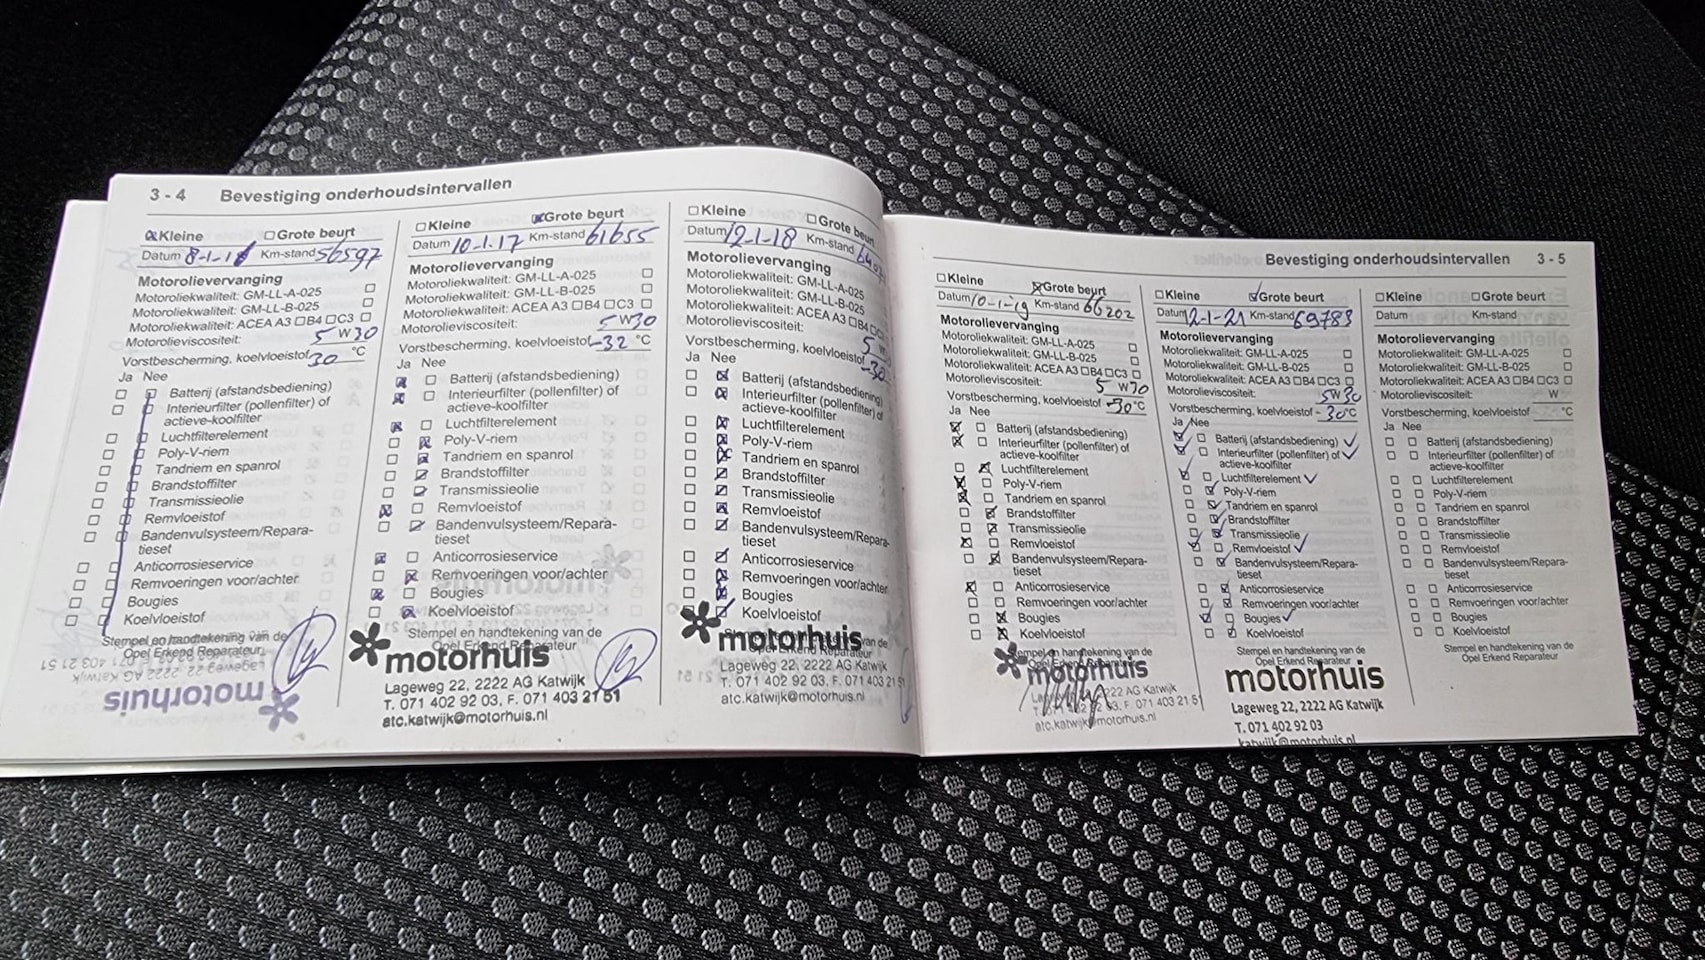 3 - 4 Bevestiging onderhoudsintervallen
Kleine Grote beurt
Datum 8-1-1 Km-stand 56597
Motorolievervanging
Motoroliekwaliteit: GM-LL-A-025
Motoroliekwaliteit: GM-LL-B-025
Motoroliekwaliteit: ACEA A3 B4 C3
Motorolieviscositeit: 5 W 30
Vorstbescherming, koelvloeistof 30 °C
Ja Nee
Batterij (afstandsbediening)
Interieurfilter (pollenfilter) of
actieve-koolfilter
Luchtfilterelement
Poly-V-riem
Tandriem en spanrol
Brandstoffilter
Transmissieolie
Remvloeistof
Bandenvulsysteem/Repara-
tieset
Anticorrosieservice
Remvoeringen voor/achter
Bougies
Koelvloeistof
Stempel en handtekening van de
Opel Erkend Reparateur
motorhuis
Lageweg 22, 2222 AG Katwijk
Kleine Grote beurt
Datum 10-1-17 Km-stand 61655
Motorolievervanging
Motoroliekwaliteit: GM-LL-A-025
Motoroliekwaliteit: GM-LL-B-025
Motoroliekwaliteit: ACEA A3 B4 C3
Motorolieviscositeit: 5 W 30
Vorstbescherming, koelvloeistof -32 °C
Ja Nee
Batterij (afstandsbediening)
Interieurfilter (pollenfilter) of
actieve-koolfilter
Luchtfilterelement
Poly-V-riem
Tandriem en spanrol
Brandstoffilter
Transmissieolie
Remvloeistof
Bandenvulsysteem/Repara-
tieset
Anticorrosieservice
Remvoeringen voor/achter
Bougies
Koelvloeistof
Stempel en handtekening van de
Opel Erkend Reparateur
motorhuis
Lageweg 22, 2222 AG Katwijk
T. 071 402 92 03, F. 071 403 21 51
atc.katwijk@motorhuis.nl
Kleine Grote beurt
Datum 12-1-18 Km-stand
Motorolievervanging
Motoroliekwaliteit: GM-LL-A-025
Motoroliekwaliteit: GM-LL-B-025
Motoroliekwaliteit: ACEA A3 B4
Motorolieviscositeit: 5
Vorstbescherming, koelvloeistof -30
Ja Nee
Batterij (afstandsbediening)
Interieurfilter (pollenfilter) of
actieve-koolfilter
Luchtfilterelement
Poly-V-riem
Tandriem en spanrol
Brandstoffilter
Transmissieolie
Remvloeistof
Bandenvulsysteem/Repara-
tieset
Anticorrosieservice
Remvoeringen voor/achter
Bougies
Koelvloeistof
motorhuis
Lageweg 22, 2222 AG Katwijk
T. 071 402 92 03, F. 071 403 21 51
atc.katwijk@motorhuis.nl
Bevestiging onderhoudsintervallen 3 - 5
Kleine Grote beurt
Datum 10-1-19 Km-stand 66202
Motorolievervanging
Motoroliekwaliteit: GM-LL-A-025
Motoroliekwaliteit: GM-LL-B-025
Motoroliekwaliteit: ACEA A3 B4 C3
Motorolieviscositeit: 5 W 30
Vorstbescherming, koelvloeistof -30 °C
Ja Nee
Batterij (afstandsbediening)
Interieurfilter (pollenfilter) of
actieve-koolfilter
Luchtfilterelement
Poly-V-riem
Tandriem en spanrol
Brandstoffilter
Transmissieolie
Remvloeistof
Bandenvulsysteem/Repara-
tieset
Anticorrosieservice
Remvoeringen voor/achter
Bougies
Koelvloeistof
Stempel en handtekening van de
Opel Erkend Reparateur
motorhuis
Lageweg 22, 2222 AG Katwijk
T. 071 402 92 03, F. 071 403 21 51
atc.katwijk@motorhuis.nl
Kleine Grote beurt
Datum 12-1-21 Km-stand 69783
Motorolievervanging
Motoroliekwaliteit: GM-LL-A-025
Motoroliekwaliteit: GM-LL-B-025
Motoroliekwaliteit: ACEA A3 B4 C3
Motorolieviscositeit: 5 W 30
Vorstbescherming, koelvloeistof - 30 °C
Ja Nee
Batterij (afstandsbediening)
Interieurfilter (pollenfilter) of
actieve-koolfilter
Luchtfilterelement
Poly-V-riem
Tandriem en spanrol
Brandstoffilter
Transmissieolie
Remvloeistof
Bandenvulsysteem/Repara-
tieset
Anticorrosieservice
Remvoeringen voor/achter
Bougies
Koelvloeistof
Stempel en handtekening van de
Opel Erkend Reparateur
motorhuis
Lageweg 22, 2222 AG Katwijk
T. 071 402 92 03
katwijk@motorhuis.nl
Kleine Grote beurt
Datum Km-stand
Motorolievervanging
Motoroliekwaliteit: GM-LL-A-025
Motoroliekwaliteit: GM-LL-B-025
Motoroliekwaliteit: ACEA A3 B4 C3
Motorolieviscositeit: W
Vorstbescherming, koelvloeistof °C
Ja Nee
Batterij (afstandsbediening)
Interieurfilter (pollenfilter) of
actieve-koolfilter
Luchtfilterelement
Poly-V-riem
Tandriem en spanrol
Brandstoffilter
Transmissieolie
Remvloeistof
Bandenvulsysteem/Repara-
tieset
Anticorrosieservice
Remvoeringen voor/achter
Bougies
Koelvloeistof
Stempel en handtekening van de
Opel Erkend Reparateur